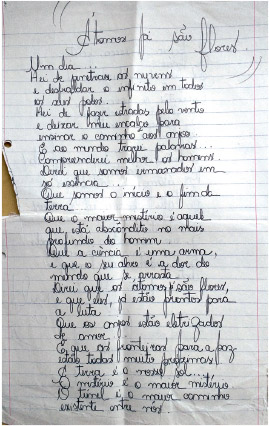 Átomos já são flores.
Um dia...
Hei de penetrar as nuvens
e desfraldar o infinito em todos
os seus polos.
Hei de fazer estradas pelo vento
e deixar meu encalço para
ensinar o caminho aos anjos.
E ao mundo trazer palomas...
Compreenderei melhor os homens.
Direi que somos irmanados em
só essência...
Que somos o início e o fim da
terra.
Que o maior mistério é aquele
que está abscôndito no mais
profundo do homem.
Que a ciência é uma arma,
e que o seu alvo é a dor do
mundo que se arrasta.
Direi que os átomos já são flores,
e que eles, já estão prontos para
a luta.
Que os anjos estão eletrizados
de amor.
E que as fronteiras para a paz
estão todas muito próximas.
A terra é o nosso sol...
O mistério é o maior mistério
O túnel é o maior caminho
existente entre nós.